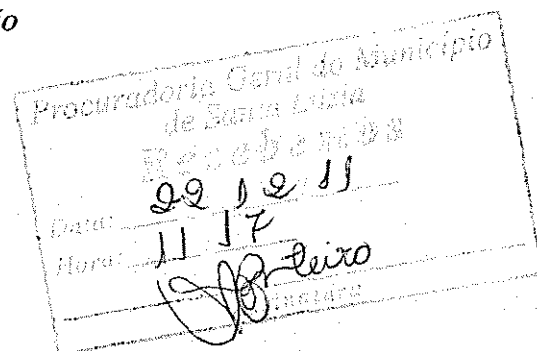 io
Procuradoria Geral do Município
de Santa Luzia
Recebemos
Data: 22 12 11
Hora: 11 17
Assinatura